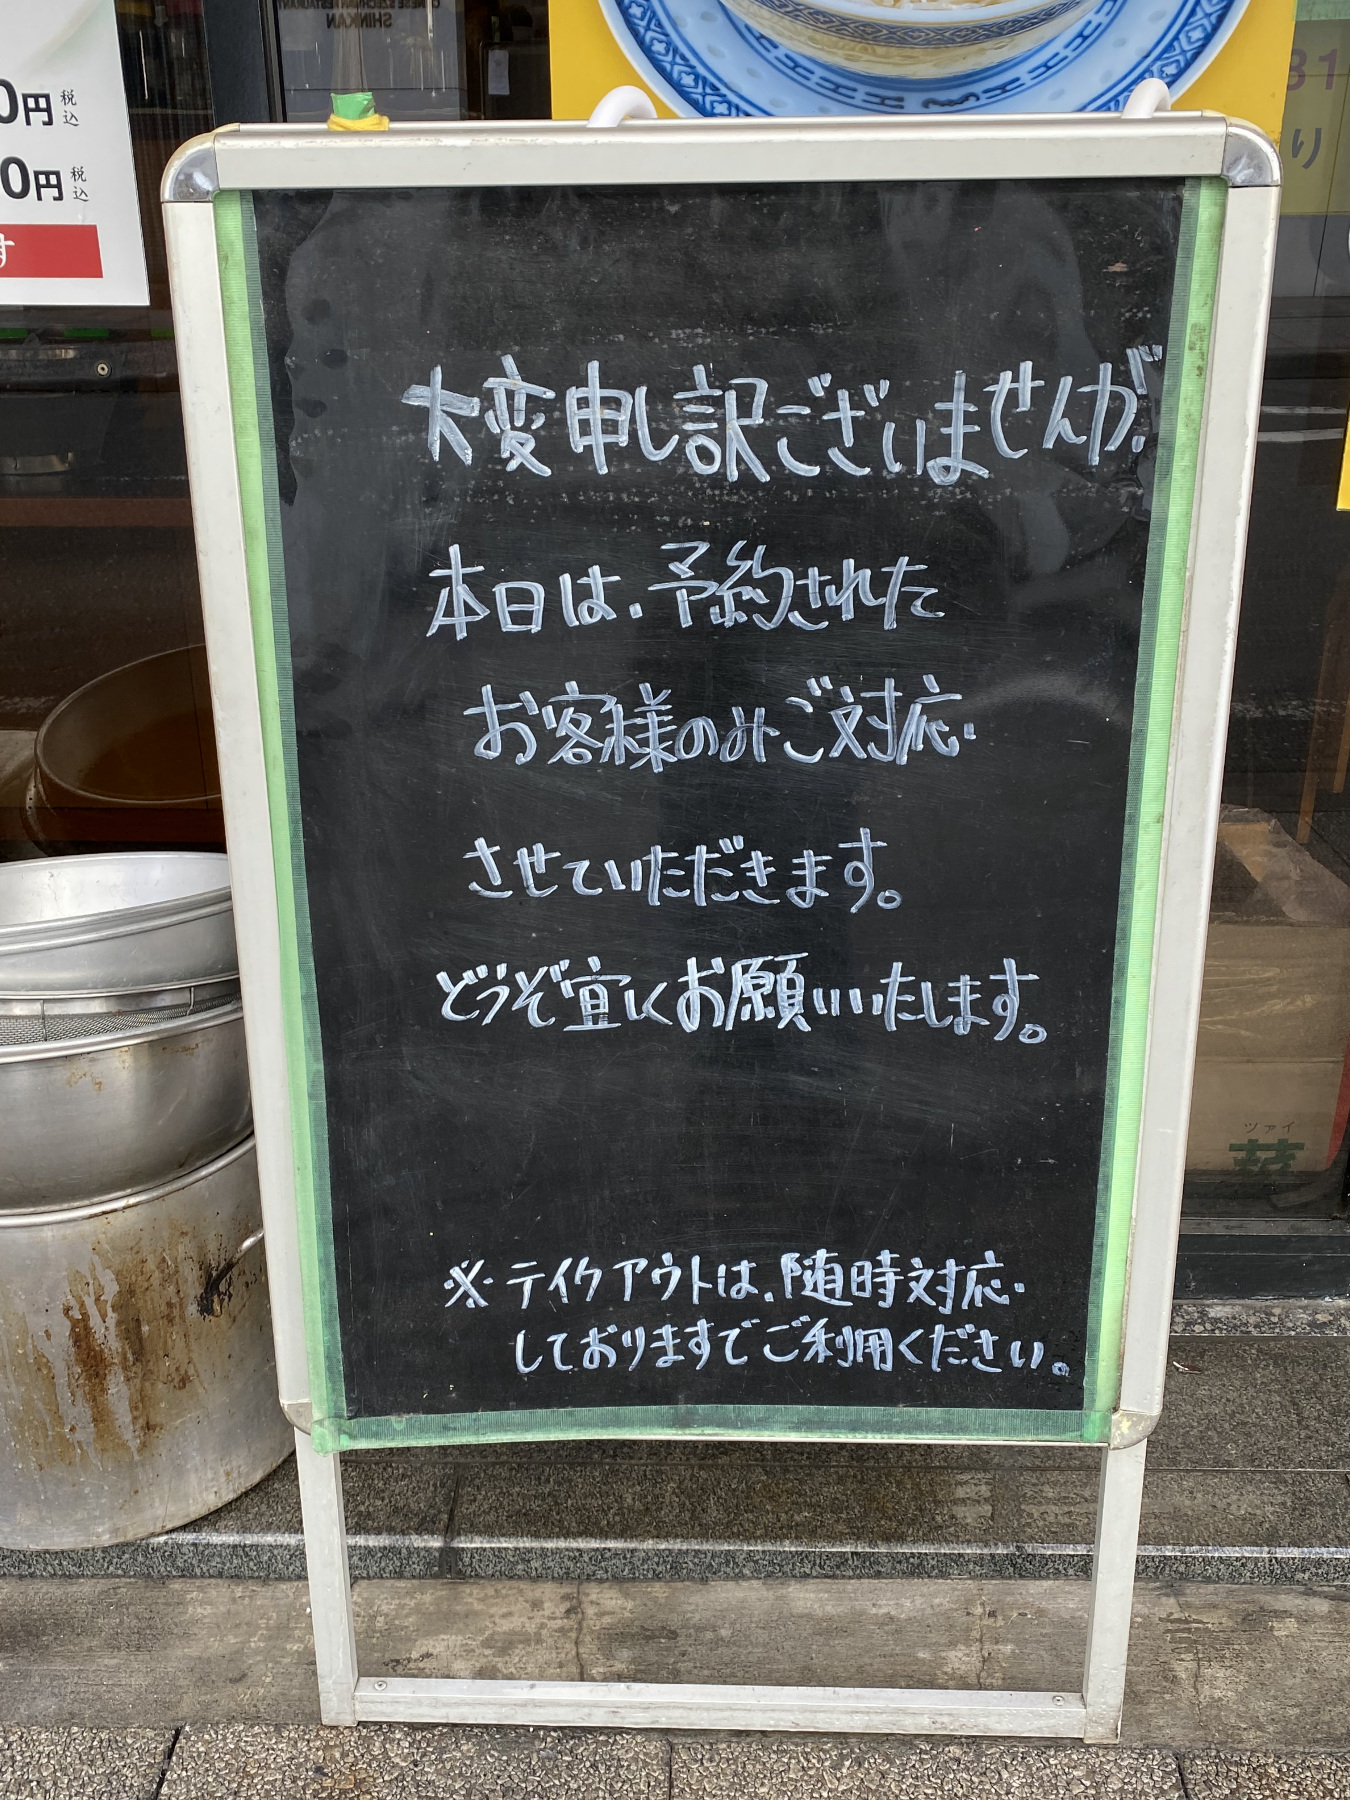 CHINESE SZECHWAN RESTAURANT
SHINKAN
0円 税込
0円 税込
す
31
り
大変申し訳ございませんが、
本日は、予約された
お客様のみご対応
させていただきます。
どうぞ宜しくお願いいたします。
※テイクアウトは、随時対応
しておりますでご利用ください。
ツァイ
菜